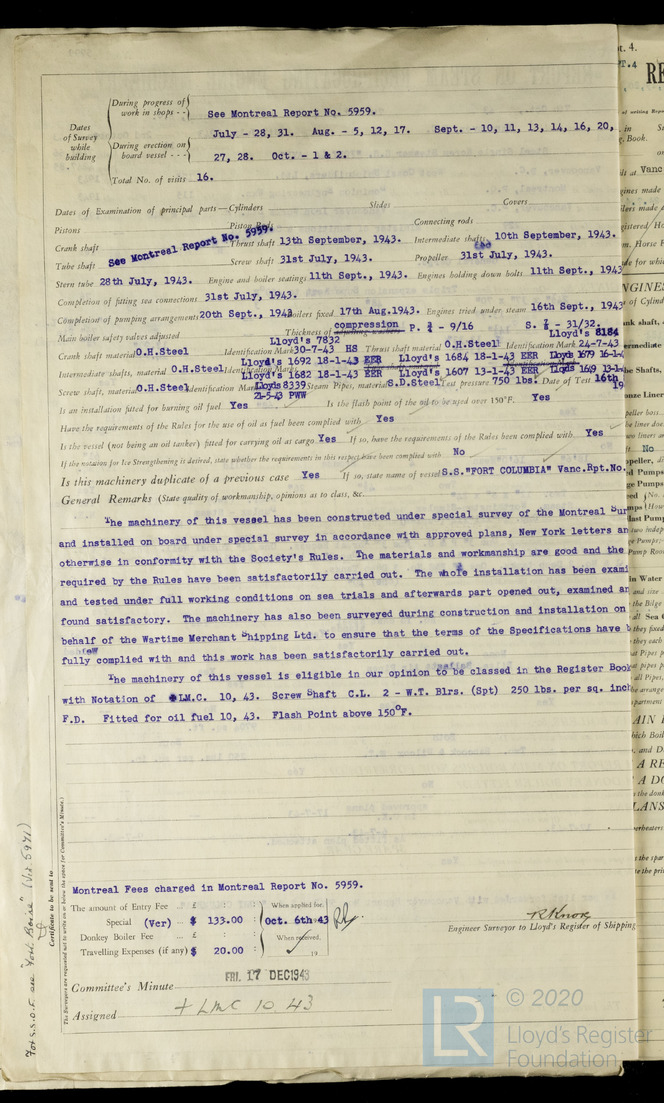 During progress of work in shops - -
See Montreal Report No. 5959.
Dates of Survey while building
July - 28, 31. Aug. - 5, 12, 17. Sept. - 10, 11, 13, 14, 16, 20,
During erection on board vessel - - -
27, 28. Oct. - 1 & 2.
Total No. of visits 16.
Dates of Examination of principal parts—Cylinders Slides Covers
Pistons Piston Rods Connecting rods
Crank shaft See Montreal Report No. 5959. Thrust shaft 13th September, 1943. Intermediate shafts 10th September, 1943.
Tube shaft Screw shaft 31st July, 1943. Propeller 31st July, 1943.
Stern tube 28th July, 1943. Engine and boiler seatings 11th Sept., 1943. Engines holding down bolts 11th Sept., 1943
Completion of fitting sea connections 31st July, 1943.
Completion of pumping arrangements 20th Sept., 1943 Boilers fixed 17th Aug.1943. Engines tried under steam 16th Sept., 1943
Main boiler safety valves adjusted Thickness of compression P. ¾ - 9/16 S. ⅞ - 31/32.
Lloyd's 7832 Lloyd's 8184
Crank shaft material O.H.Steel Identification Mark 30-7-43 HS Thrust shaft material O.H.Steel Identification Mark 24-7-43
Lloyd's 1692 18-1-43 EER Lloyd's 1684 18-1-43 EER Lloyds 1679 16-1-4
Intermediate shafts, material O.H.Steel Identification Marks Lloyd's 1682 18-1-43 EER Lloyd's 1607 13-1-43 EER Lloyds 1649 13-1-
Screw shaft, material O.H.Steel Identification Mark Lloyds 8339 Steam Pipes, material S.D.Steel Test pressure 750 lbs. Date of Test 16th
21-5-43 PWW 19
Is an installation fitted for burning oil fuel Yes Is the flash point of the oil to be used over 150°F. Yes
Have the requirements of the Rules for the use of oil as fuel been complied with Yes
Is the vessel (not being an oil tanker) fitted for carrying oil as cargo Yes If so, have the requirements of the Rules been complied with Yes
If the notation for Ice Strengthening is desired, state whether the requirements in this respect have been complied with No
Is this machinery duplicate of a previous case Yes If so, state name of vessel S.S."FORT COLUMBIA" Vanc.Rpt.No.
General Remarks (State quality of workmanship, opinions as to class, &c.
The machinery of this vessel has been constructed under special survey of the Montreal Sur
and installed on board under special survey in accordance with approved plans, New York letters an
otherwise in conformity with the Society's Rules. The materials and workmanship are good and the
required by the Rules have been satisfactorily carried out. The whole installation has been exami
and tested under full working conditions on sea trials and afterwards part opened out, examined an
found satisfactory. The machinery has also been surveyed during construction and installation on
behalf of the Wartime Merchant Shipping Ltd. to ensure that the terms of the Specifications have b
fully complied with and this work has been satisfactorily carried out.
The machinery of this vessel is eligible in our opinion to be classed in the Register Book
with Notation of LM.C. 10, 43. Screw Shaft C.L. 2 - W.T. Blrs. (Spt) 250 lbs. per sq. inch
F.D. Fitted for oil fuel 10, 43. Flash Point above 150°F.
Certificate to be sent to
The Surveyors are requested not to write on or below the space for Committee's Minute.
Montreal Fees charged in Montreal Report No. 5959.
The amount of Entry Fee .. £ : : When applied for,
Special (Vcr) .. $ 133.00 : Oct. 6th 43
Donkey Boiler Fee .. £ : : When received,
Travelling Expenses (if any) $ 20.00 : 19
R Knox
Engineer Surveyor to Lloyd's Register of Shipping
FRI. 17 DEC 1943
Committee's Minute
Assigned + LMC 10.43
© 2020
LR
Lloyd's Register
Foundation